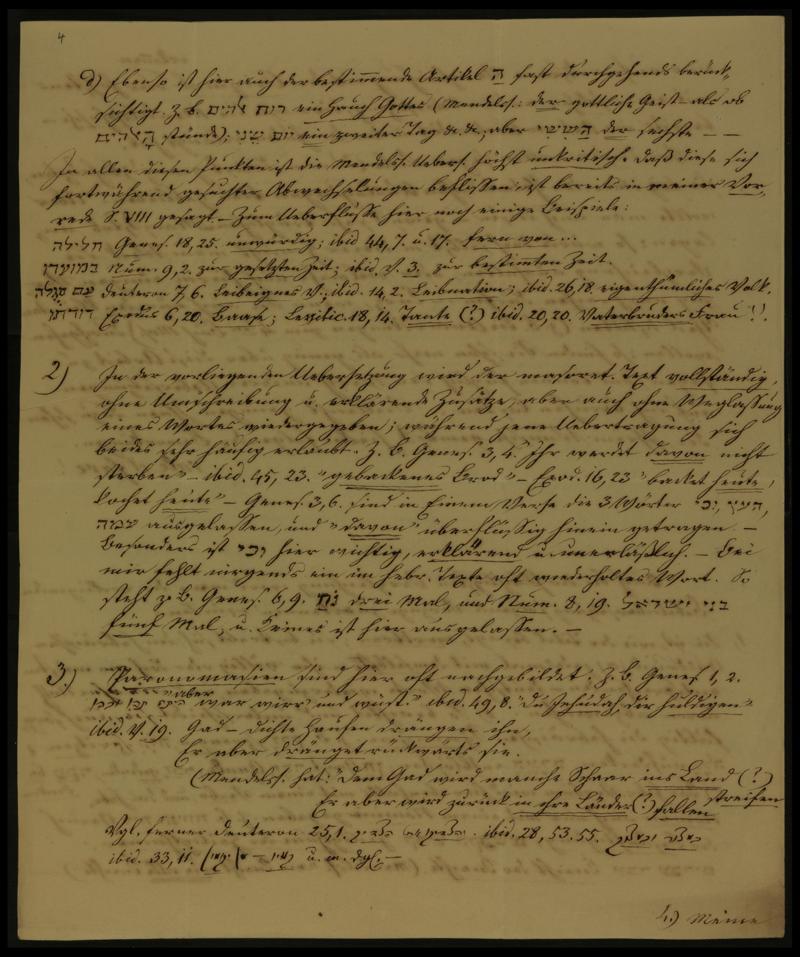 4
d) Ebenso ist hier auch der bestimmende Artikel ה fast durchgehends berück-
sichtigt. Z. B. רוח אלהים ein Hauch Gottes (Mendels.: der göttliche Geist – als ob
הָאלהים stünde); יום שני ein zweiter Tag &c. &c.; aber הששי der sechste – –
In allen diesen Punkten ist die Mendels. Uebers. höchst unkritisch. Daß diese sich
fortwährend gesuchter Abwechselungen beflissen, ist bereits in meiner Vor-
rede S. VIII gesagt. – Zum Ueberflusse hier noch einige Beispiele:
חלילה Genes. 18, 25. unwürdig; ibid 44, 7. u. 17. fern von ...
במועדו Num. 9, 2. zur gesetzten Zeit; ibid. V. 3. zur bestimten Zeit.
עם סגלה Deuteron 7, 6. Leibeignes V.; ibid. 14, 2. Leibnation; ibid. 26, 18. eigenthümliches Volk.
דודתו Exodus 6, 20. Baase; Levitic. 18, 14. Tante (?) ibid. 20, 20. Vaterbruders Frau !!.
2) In der vorliegenden Uebersetzung wird der masoret. Text vollständig,
ohne Umschreibung u. erklärende Zusätze, aber auch ohne Weglassung
eines Wortes wiedergegeben; während jene Uebertragung sich
beides sehr häufig erlaubt. Z. B. Genes. 3, 4. Ihr werdet davon nicht
sterben" – ibid. 45, 23. "gebackenes Brod" – Exod. 16, 23 "backet heute,
kochet heute" – Genes. 3, 6. sind in Einem Verse die 3 Wörter העץ, וכי,
עמה ausgelassen, und "davon" überflüssig hinein getragen. –
Besonders ist וכי hier wichtig, erklärend u. unerläßlich. – Bei
mir fehlt nirgends ein im hebr. Texte oft wiederholtes Wort. So
steht z. B. Genes. 6, 9. נח drei Mal, und Num. 8, 19. בני ישראל
fünf Mal, u. Keines ist hier ausgelassen. –
3.) Paronomasien sind hier oft nachgebildet: Z. B. Genes 1, 2.
"aber war wirr und wüst." ibid. 49, 8. "Du Jehudah, dir huldigen"
ibid. V. 19. Gad – dichte Haufen drängen ihn,
Er aber dränget rückwärts sie.
(Mendels. hat: "Dem Gad wird manche Schaar ins Land (?) streifen
Er aber wird zurück in ihre Länder (?) fallen
Vgl. ferner Deuteron 25, 1. ibid. 28, 53. 55.
ibid. 33, 11. u. m. dgl. –
4.) Meine